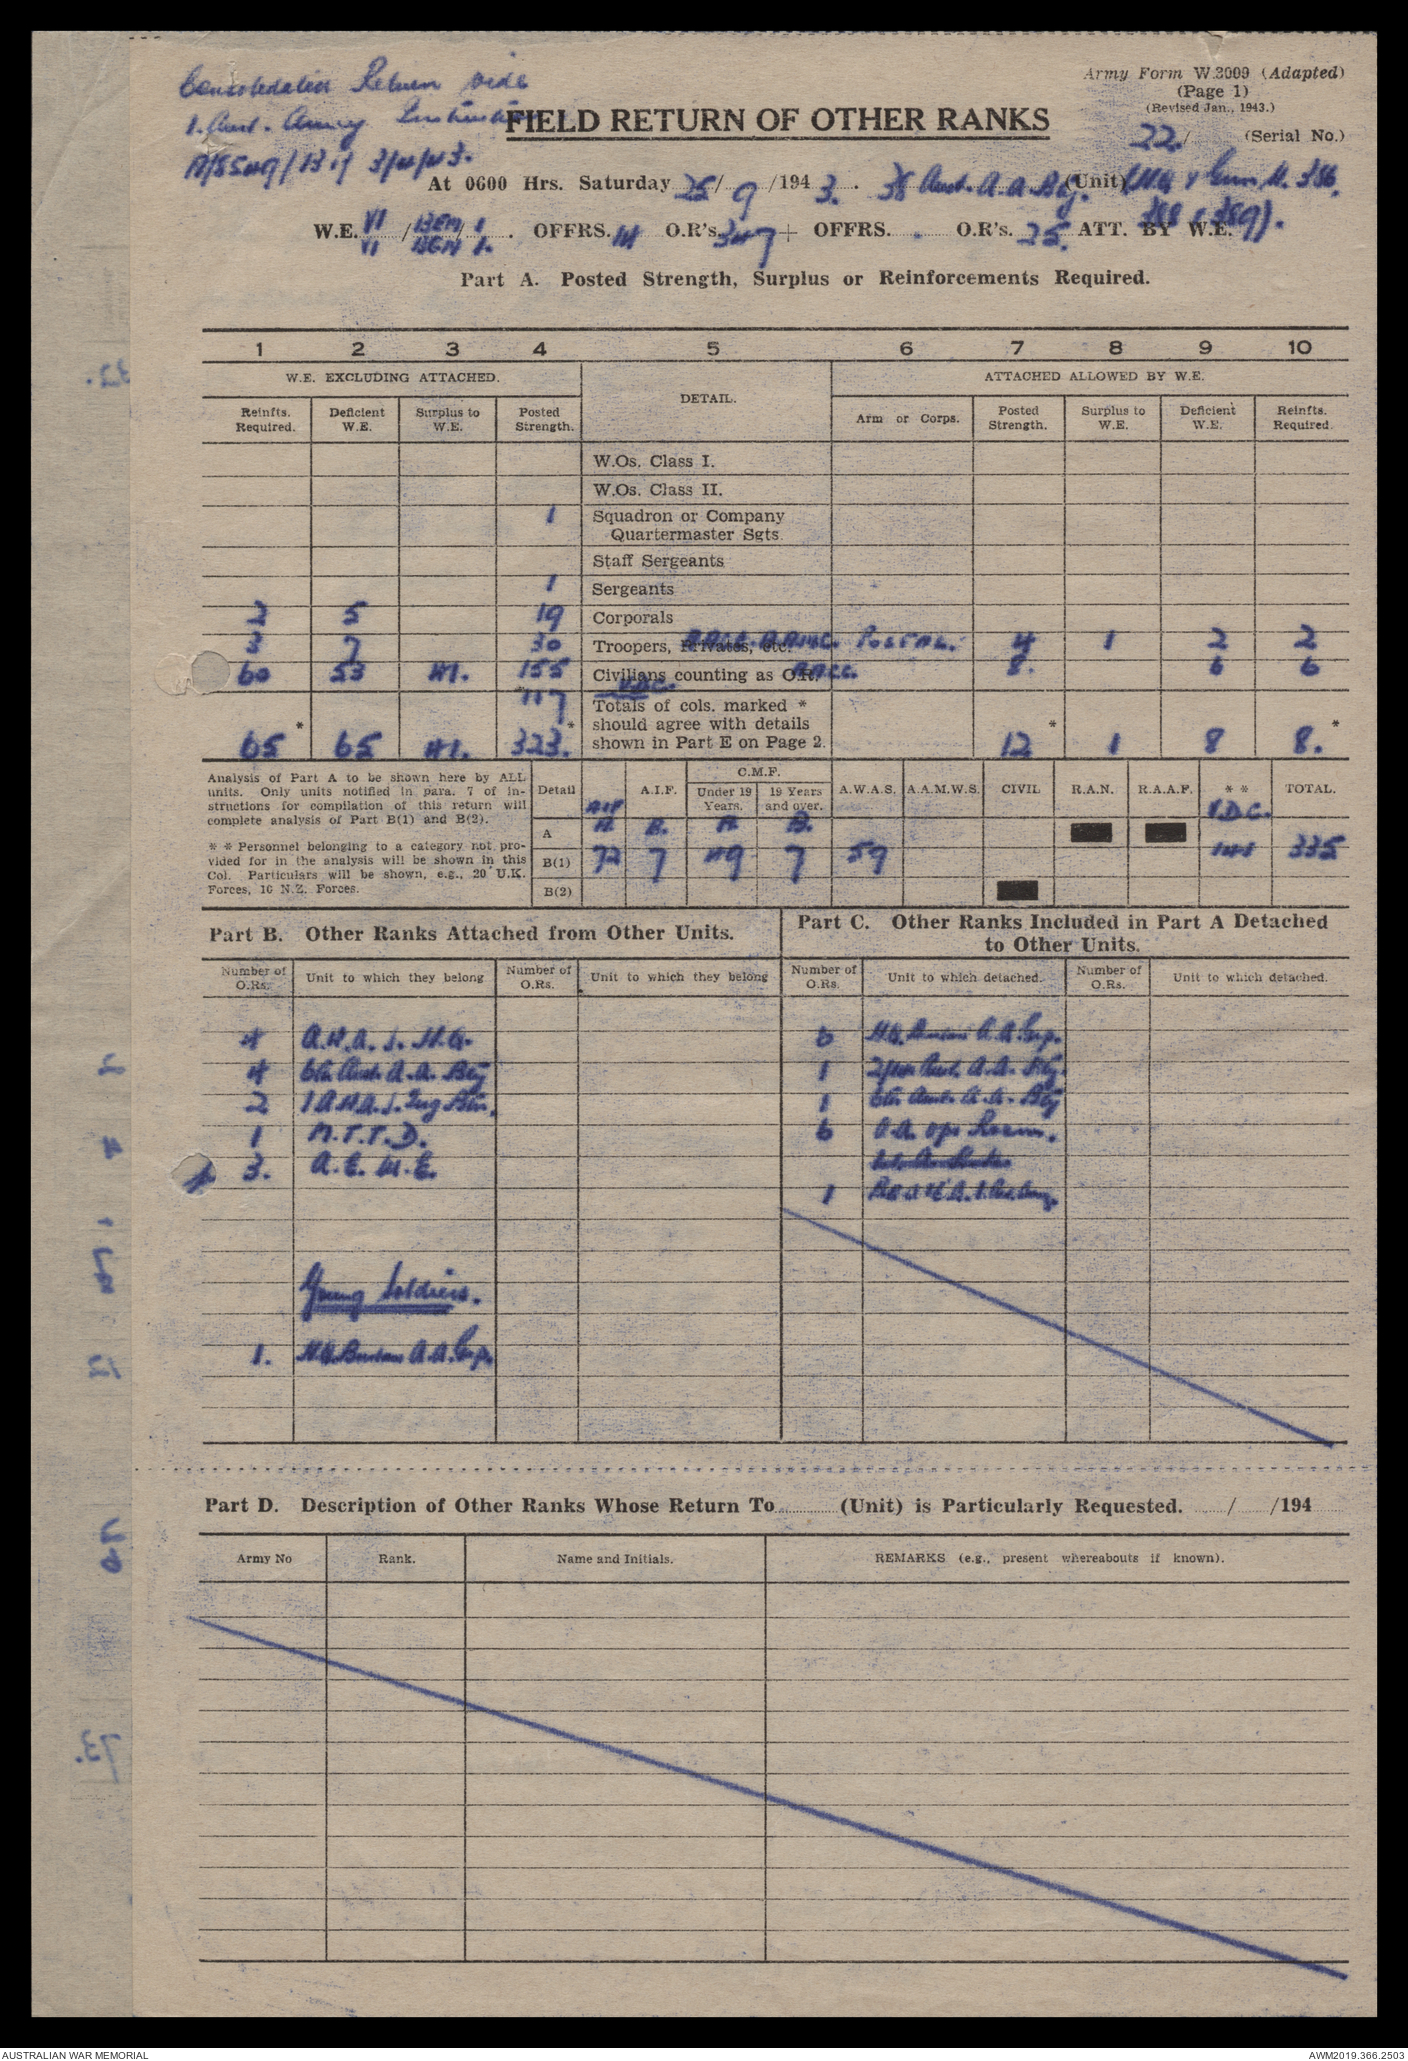 Consolidated Return vide
1. Aust. Army Instruction
Army Form W.3009 (Adapted)
(Page 1)
(Revised Jan., 1943.)
FIELD RETURN OF OTHER RANKS
22 / (Serial No.)
3/4/43.
At 0600 Hrs. Saturday 25 / 9 /194 3. 38 Aust. A.A. Bty. (Unit) (HQ & Gun 386,
388 & 389).
W.E. VI / / 1 . OFFRS. 14 O.R's. 347 + OFFRS. . O.R's. 25. ATT. BY W.E.
VI 1.
Part A. Posted Strength, Surplus or Reinforcements Required.
1 2 3 4 5 6 7 8 9 10
W.E. EXCLUDING ATTACHED. DETAIL. ATTACHED ALLOWED BY W.E.
Reinfts. Required. Deficient W.E. Surplus to W.E. Posted Strength. Arm or Corps. Posted Strength. Surplus to W.E. Deficient W.E. Reinfts. Required.
W.Os. Class I.
W.Os. Class II.
1 Squadron or Company
Quartermaster Sgts.
Staff Sergeants
1 Sergeants
2 5 19 Corporals
3 7 30 Troopers, Privates, etc. Postal. 4 1 2 2
60 53 41. 155 Civilians counting as O.R. 8. 6 6
V.D.C.
117 Totals of cols. marked *
* * should agree with details * *
65 65 41. 323. shown in Part E on Page 2. 12 1 8 8.
Analysis of Part A to be shown here by ALL
units. Only units notified in para. 7 of in-
structions for compilation of this return will
complete analysis of Part B(1) and B(2).
* * Personnel belonging to a category not pro-
vided for in the analysis will be shown in this
Col. Particulars will be shown, e.g., 20 U.K.
Forces, 16 N.Z. Forces.
C.M.F.
Detail AIF A.I.F. Under 19 Years. 19 Years and over. A.W.A.S. A.A.M.W.S. CIVIL R.A.N. R.A.A.F. * * TOTAL.
V.D.C.
A A. B. A. B.
B(1) 72 7 49 7 59 141 335
B(2)
Part B. Other Ranks Attached from Other Units.
Part C. Other Ranks Included in Part A Detached
to Other Units.
Number of O.Rs. Unit to which they belong Number of O.Rs. Unit to which they belong Number of O.Rs. Unit to which detached. Number of O.Rs. Unit to which detached.
4 6th Aust. A.A. Bty
1 6th Aust. A.A. Bty
3. A.E.M.E.
6 Ops Room.
Young Soldiers.
1. A.A. Grp.
Part D. Description of Other Ranks Whose Return To (Unit) is Particularly Requested. / /194
Army No Rank. Name and Initials. REMARKS (e.g., present whereabouts if known).
AUSTRALIAN WAR MEMORIAL AWM2019.366.2503